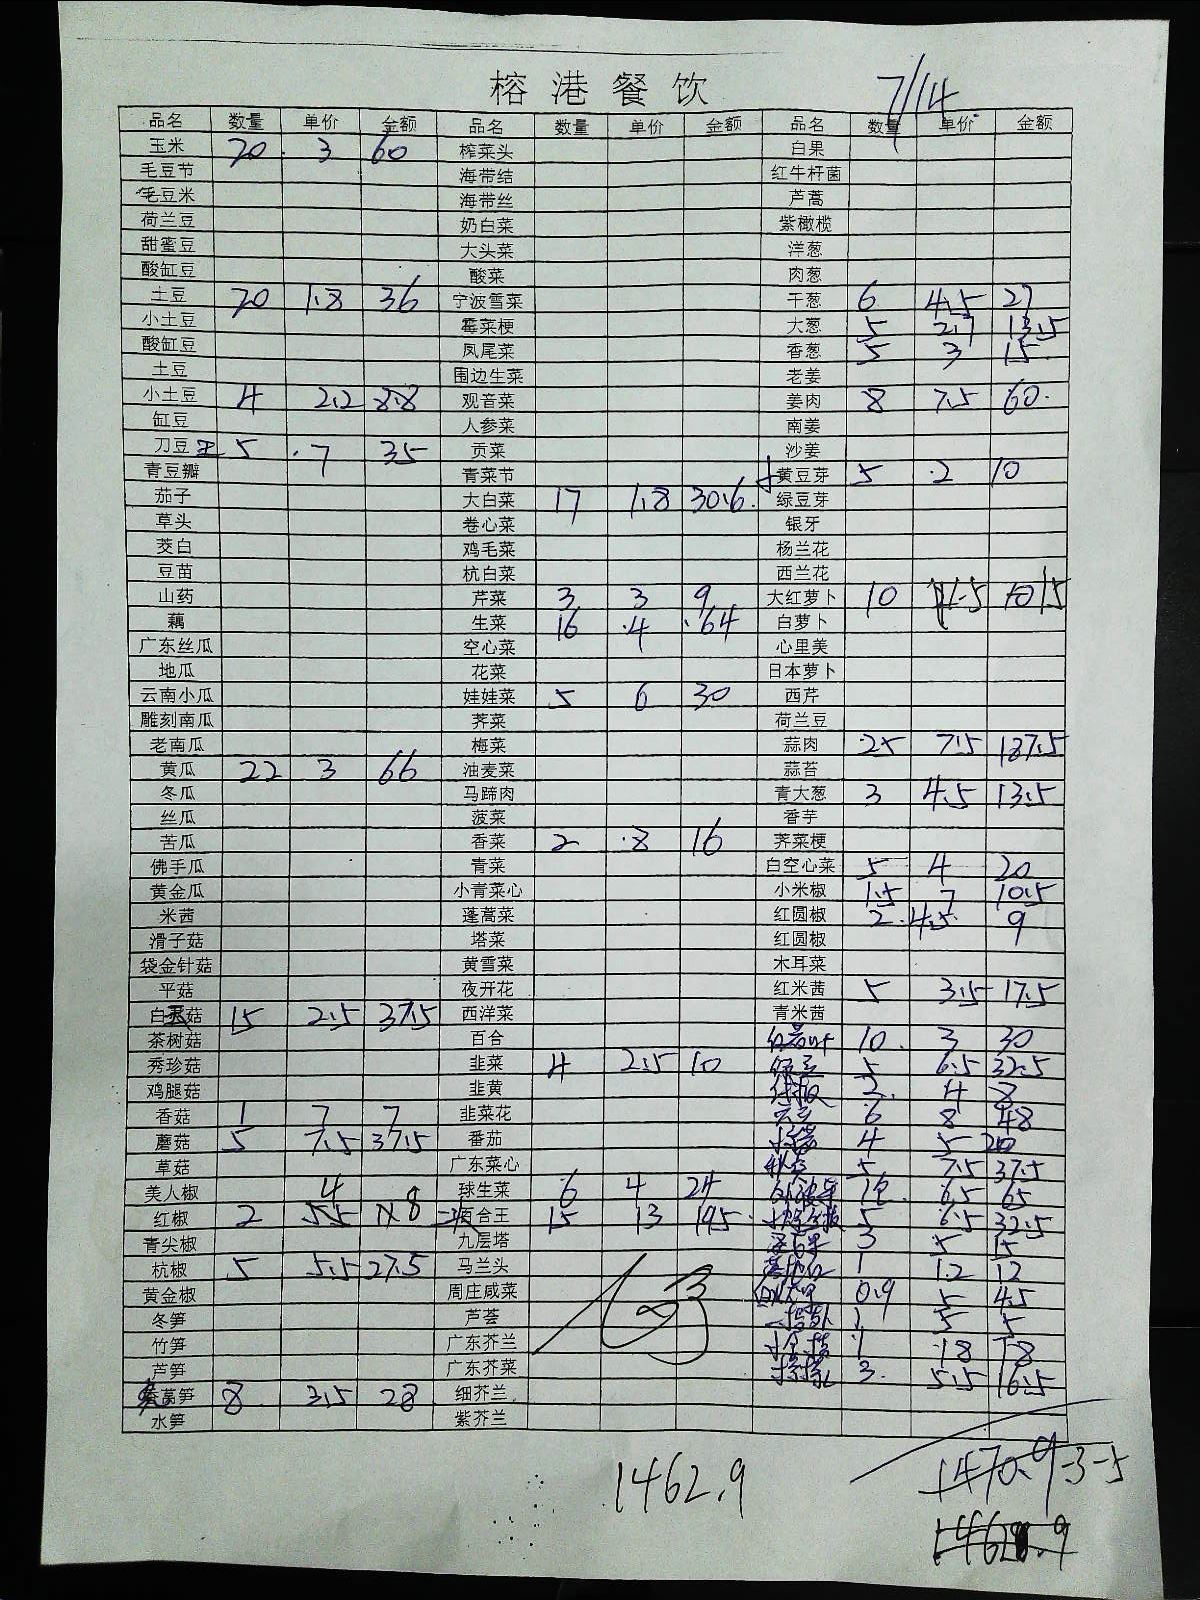 榕港餐饮
7/14
品名 数量 单价 金额 品名 数量 单价 金额 品名 数量 单价 金额
玉米 20 3 60 榨菜头 白果
毛豆节 海带结 红牛杆菌
毛豆米 海带丝 芦蒿
荷兰豆 奶白菜 紫橄榄
甜蜜豆 大头菜 洋葱
酸缸豆 酸菜 肉葱
土豆 20 1.8 36 宁波雪菜 干葱 6 4.5 27
小土豆 霉菜梗 大葱 5 2.7 13.5
酸缸豆 凤尾菜 香葱 5 3 15
土豆 围边生菜 老姜
小土豆 4 2.2 8.8 观音菜 姜肉 8 7.5 60
缸豆 人参菜 南姜
刀豆 5 7 35 贡菜 沙姜
青豆瓣 青菜节 黄豆芽 5 2 10
茄子 大白菜 17 1.8 30.6 绿豆芽
草头 卷心菜 银牙
茭白 鸡毛菜 杨兰花
豆苗 杭白菜 西兰花
山药 芹菜 3 3 9 大红萝卜 10 1.5 15
藕 生菜 16 4 64 白萝卜
广东丝瓜 空心菜 心里美
地瓜 花菜 日本萝卜
云南小瓜 娃娃菜 5 6 30 西芹
雕刻南瓜 荠菜 荷兰豆
老南瓜 梅菜 蒜肉 25 7.5 187.5
黄瓜 22 3 66 油麦菜 蒜苔
冬瓜 马蹄肉 青大葱 3 4.5 13.5
丝瓜 菠菜 香芋
苦瓜 香菜 2 8 16 荠菜梗
佛手瓜 青菜 白空心菜 5 4 20
黄金瓜 小青菜心 小米椒 1.5 7 10.5
米茜 蓬蒿菜 红圆椒 2 4.5 9
滑子菇 塔菜 红圆椒
袋金针菇 黄雪菜 木耳菜
平菇 夜开花 红米茜 5 3.5 17.5
白菇 15 2.5 37.5 西洋菜 青米茜
茶树菇 百合 10 3 30
秀珍菇 韭菜 4 2.5 10 5 6.5 32.5
鸡腿菇 韭黄 2 4 8
香菇 1 7 7 韭菜花 6 8 48
蘑菇 5 7.5 37.5 番茄 4 5 20
草菇 广东菜心 5 7.5 37.5
美人椒 4 球生菜 6 4 24 6.5 65
红椒 2 5.5 8 百合王 15 13 195 5 6.5 32.5
青尖椒 九层塔 3 5 15
杭椒 5 5.5 27.5 马兰头 1 1.2 12
黄金椒 周庄咸菜 0.9 5 4.5
冬笋 芦荟 1 5 5
竹笋 广东芥兰 1 18 18
芦笋 广东芥菜 3 5.5 16.5
莴笋 8 3.5 28 细芥兰
水笋 紫芥兰
1462.9
1470.9-3-5